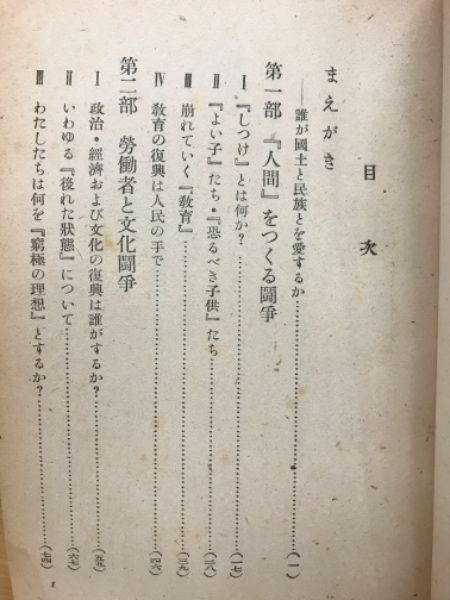 目次
まえがき
——誰が國土と民族とを愛するか……(一)
第一部 『人間』をつくる鬪爭
Ⅰ 『しつけ』とは何か？……(一七)
Ⅱ 『よい子』たち・『恐るべき子供』たち……(二八)
Ⅲ 崩れていく『敎育』……(三九)
Ⅳ 敎育の復興は人民の手で……(四六)
第二部 勞働者と文化鬪爭
Ⅰ 政治・經濟および文化の復興は誰がするか？……(五五)
Ⅱ いわゆる『後れた狀態』について……(六七)
Ⅲ わたしたちは何を『窮極の理想』とするか？……(七四)